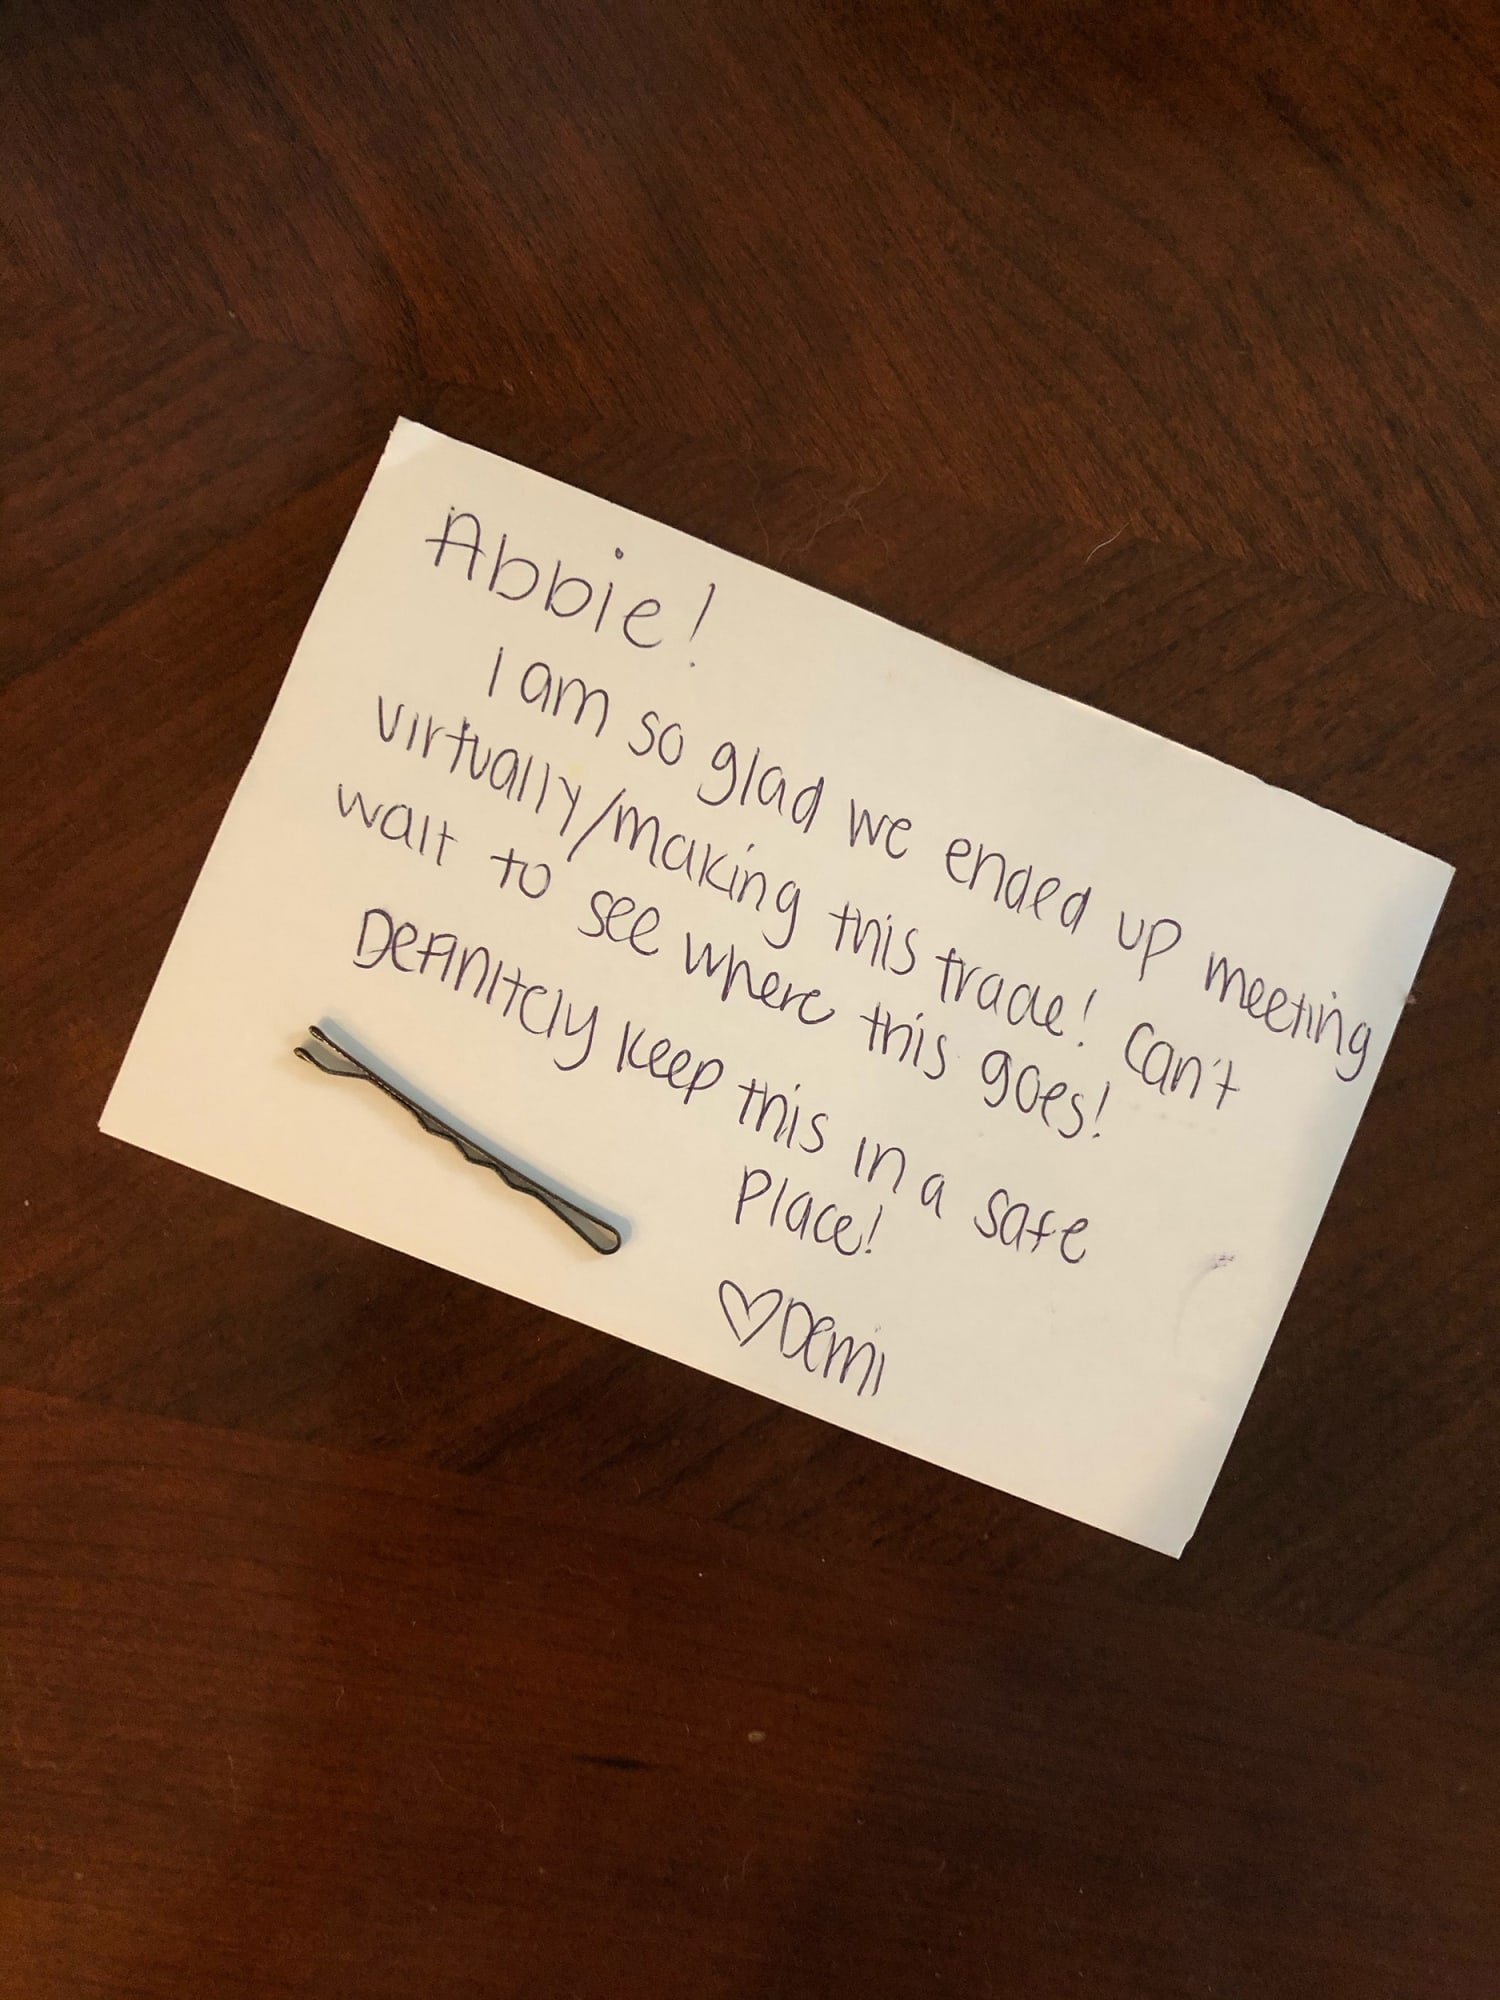 Abbie!
I am so glad we ended up meeting
virtually/making this trade! Can't
wait to see where this goes!
Definitely keep this in a safe
place!
♡Demi